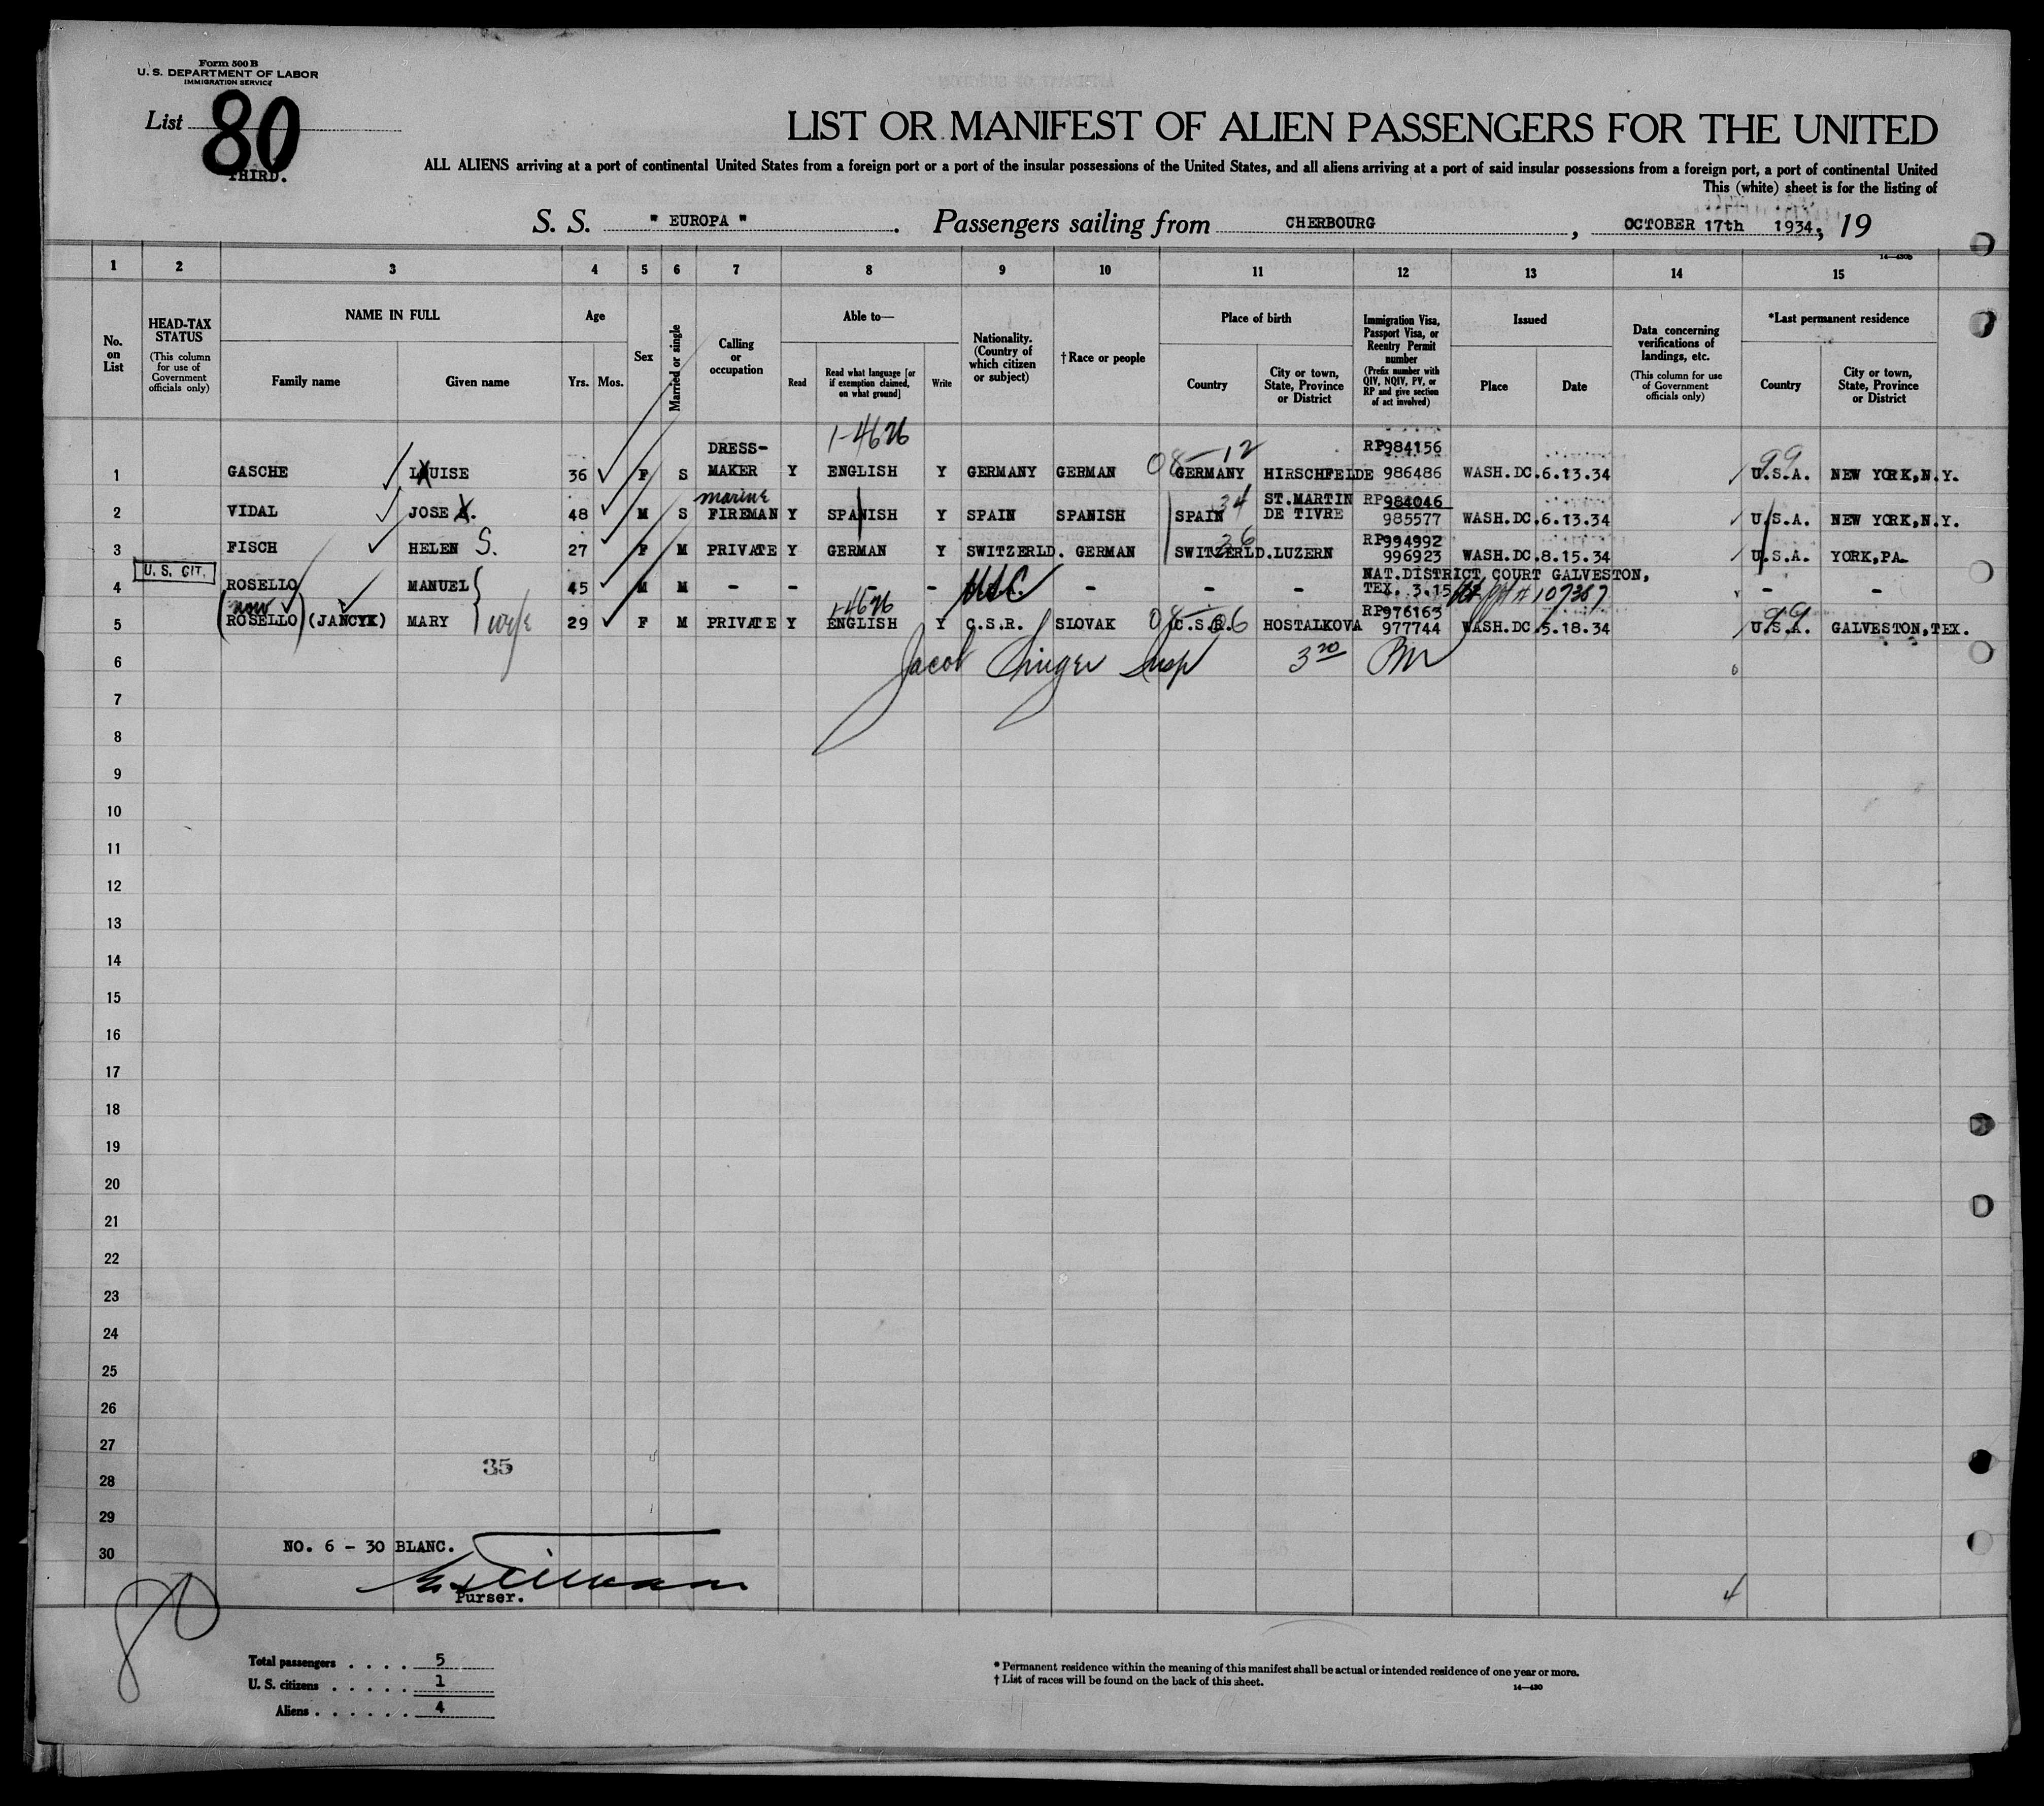 Form 500 B
U. S. DEPARTMENT OF LABOR
IMMIGRATION SERVICE
List 80
THIRD.
LIST OR MANIFEST OF ALIEN PASSENGERS FOR THE UNITED
ALL ALIENS arriving at a port of continental United States from a foreign port or a port of the insular possessions of the United States, and all aliens arriving at a port of said insular possessions from a foreign port, a port of continental United
This (white) sheet is for the listing of
S. S. " EUROPA " . Passengers sailing from CHERBOURG , OCTOBER 17th 1934, 19
14-430b
1 2 3 4 5 6 7 8 9 10 11 12 13 14 15
No. on List
HEAD-TAX STATUS (This column for use of Government officials only)
NAME IN FULL
Family name Given name
Age
Yrs. Mos.
Sex
Married or single
Calling or occupation
Able to—
Read Read what language [or if exemption claimed, on what ground] Write
Nationality. (Country of which citizen or subject)
† Race or people
Place of birth
Country City or town, State, Province or District
Immigration Visa, Passport Visa, or Reentry Permit number (Prefix number with QIV, NQIV, PV, or RP and give section of act involved)
Issued
Place Date
Data concerning verifications of landings, etc. (This column for use of Government officials only)
*Last permanent residence
Country City or town, State, Province or District
DRESS- 1-4676 08-12 RP984156 99
1 GASCHE LOUISE 36 F S MAKER Y ENGLISH Y GERMANY GERMAN GERMANY HIRSCHFELDE 986486 WASH.DC.6.13.34 U.S.A. NEW YORK,N.Y.
marine 34 ST.MARTIN RP984046
2 VIDAL JOSE 48 M S FIREMAN Y SPANISH Y SPAIN SPANISH SPAIN DE TIVRE 985577 WASH.DC.6.13.34 U.S.A. NEW YORK,N.Y.
36 RP994992
3 FISCH HELEN S. 27 F M PRIVATE Y GERMAN Y SWITZERLD. GERMAN SWITZERLD.LUZERN 996923 WASH.DC.8.15.34 U.S.A. YORK,PA.
U. S. CIT.
NAT.DISTRICT COURT GALVESTON,
4 ROSELLO MANUEL 45 M M - - - - - - - TEX. 3.15 # 107367 - -
now wife 1-4676 08-06 RP976163 99
5 ROSELLO (JANCYK) MARY 29 F M PRIVATE Y ENGLISH Y C.S.R. SLOVAK C.S.R. HOSTALKOVA 977744 WASH.DC.5.18.34 U.S.A. GALVESTON,TEX.
6 Jacob Singer Insp 3 20
7
8
9
10
11
12
13
14
15
16
17
18
19
20
21
22
23
24
25
26
27
35
28
29
30
NO. 6 - 30 BLANC.
Purser.
4
80
Total passengers . . . . 5
U. S. citizens . . . . . 1
Aliens . . . . . . 4
* Permanent residence within the meaning of this manifest shall be actual or intended residence of one year or more.
† List of races will be found on the back of this sheet.
14-430